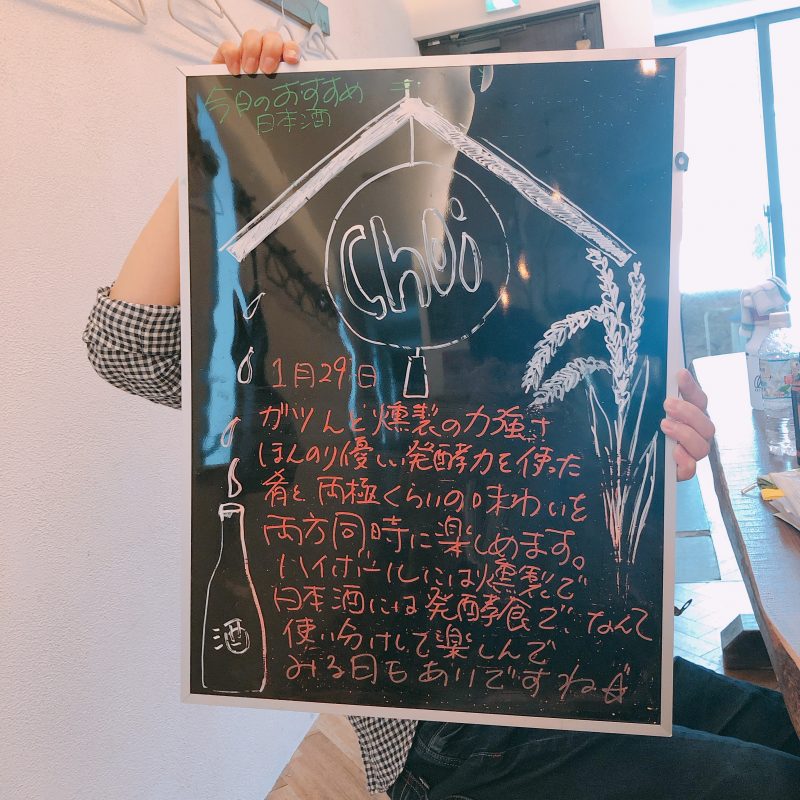 今日のおすすめ
日本酒
Choi
1月29日
ガツんと燻製の力強さ
ほんのり優しい発酵力を使った
肴と両極くらいの味わいを
両方同時に楽しめます。
ハイボールには燻製で
日本酒には発酵食で、なんて
使い分けして楽しんで
みる日もありですね☆
酒